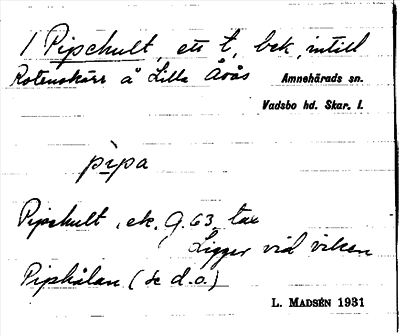 1 Pipehult, ett t, bek, intill
Rotenskärr å Lilla Årås Amnehärads sn.
Vadsbo hd. Skar. l.
pipa
Pipehult, ek. G. 63 tax
Ligger vid viken
Pipkålan (se d.o.)
L. MADSÉN 1931